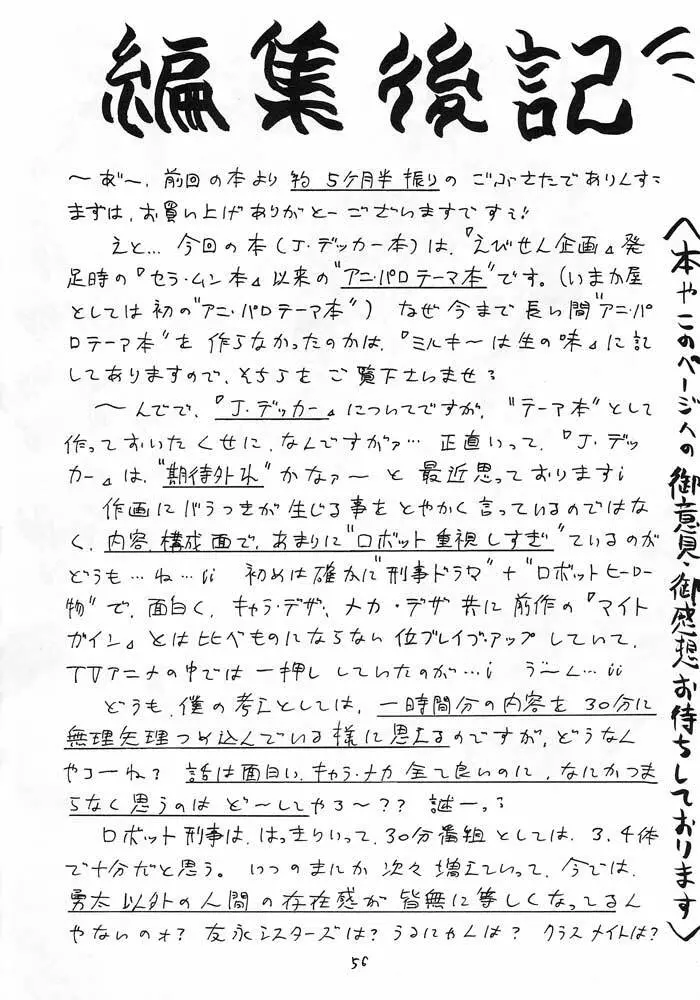 編集後記
〜あ゛〜、前回の本より約5ケ月半振りのごぶさたでありんす
まずは、お買い上げありがとーございますですぅ
えと… 今回の本(J・デッカー本)は、『えびせん企画』発
足時の『セラ・ムン本』以来の"アニ・パロテーマ本"です。(いまか屋
としては初の"アニ・パロテーマ本") なぜ今まで長い間"アニ・パ
ロテーマ本"を作らなかったのかは、『ミルキーは生の味』に記
してありますので、そちらをご覧下さいませ
〜んでで、『J・デッカー』についてですが、"テーマ本"として
作っておいたくせに、なんですがァ… 正直いって、『J・デッ
カー』は、"期待外れ"かなァ〜と最近思っております
作画にバラつきが生じる事をとやかく言っているのではな
く、内容、構成面で、あまりに"ロボット重視しすぎ"ているのが
どうも…ね… 初めは確かに"刑事ドラマ"+"ロボットヒーロー
物"で、面白く、キャラ・デザ、メカ・デザ共に前作の『マイト
ガイン』とは比べものにならない位ブレイブ・アップしていて、
TVアニメの中では一押ししていたのが… う〜ん…
どうも、僕の考えとしては、一時間分の内容を30分に
無理矢理つめ込んでいる様に思えるのですが、どうなん
やろーね? 話は面白い、キャラ・メカ全て良いのに、なにかつま
らなく思うのはど〜してやろ〜?? 謎ーっ
ロボット刑事は、はっきりいって、30分番組としては、3、4体
で十分だと思う。いつのまにか次々増えていって、今では、
勇太以外の人間の存在感が皆無に等しくなってるん
やないのォ? 友永シスターズは? うるにゃんは? クラスメイトは?
56
〈本やこのページへの御意見・御感想お待ちしております〉